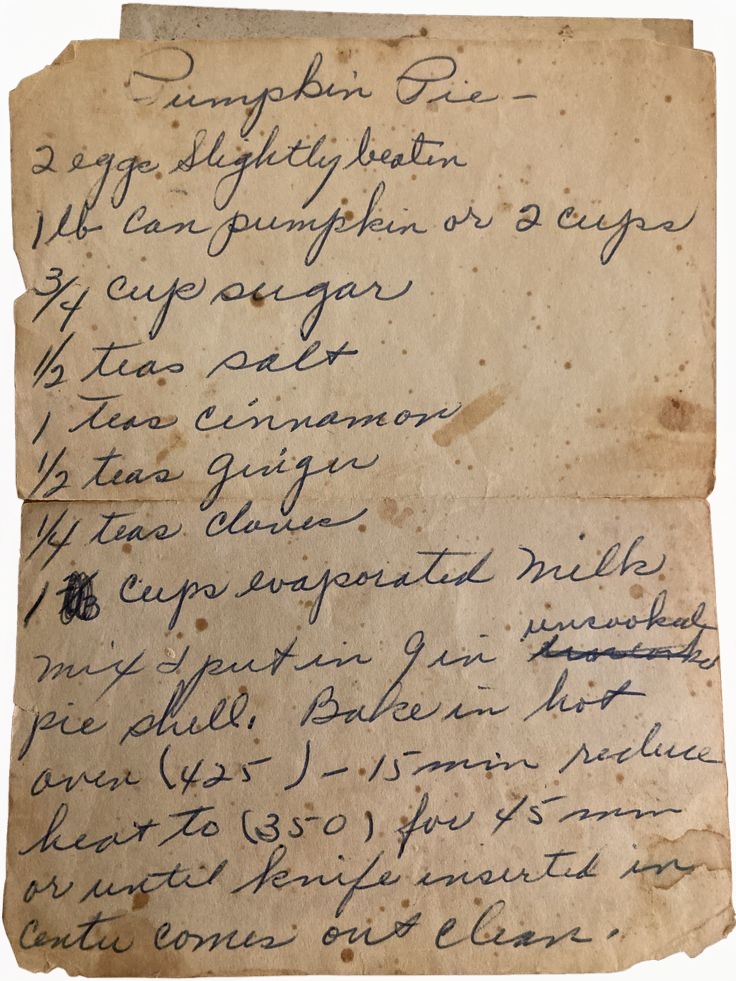 Pumpkin Pie -
2 eggs slightly beaten
1 lb can pumpkin or 2 cups
3/4 cup sugar
1/2 teas salt
1 teas cinnamon
1/2 teas ginger
1/4 teas cloves
1 cups evaporated milk
uncooked
mix & put in 9 in
pie shell. Bake in hot
oven (425) - 15 min reduce
heat to (350) for 45 min
or until knife inserted in
center comes out clean.